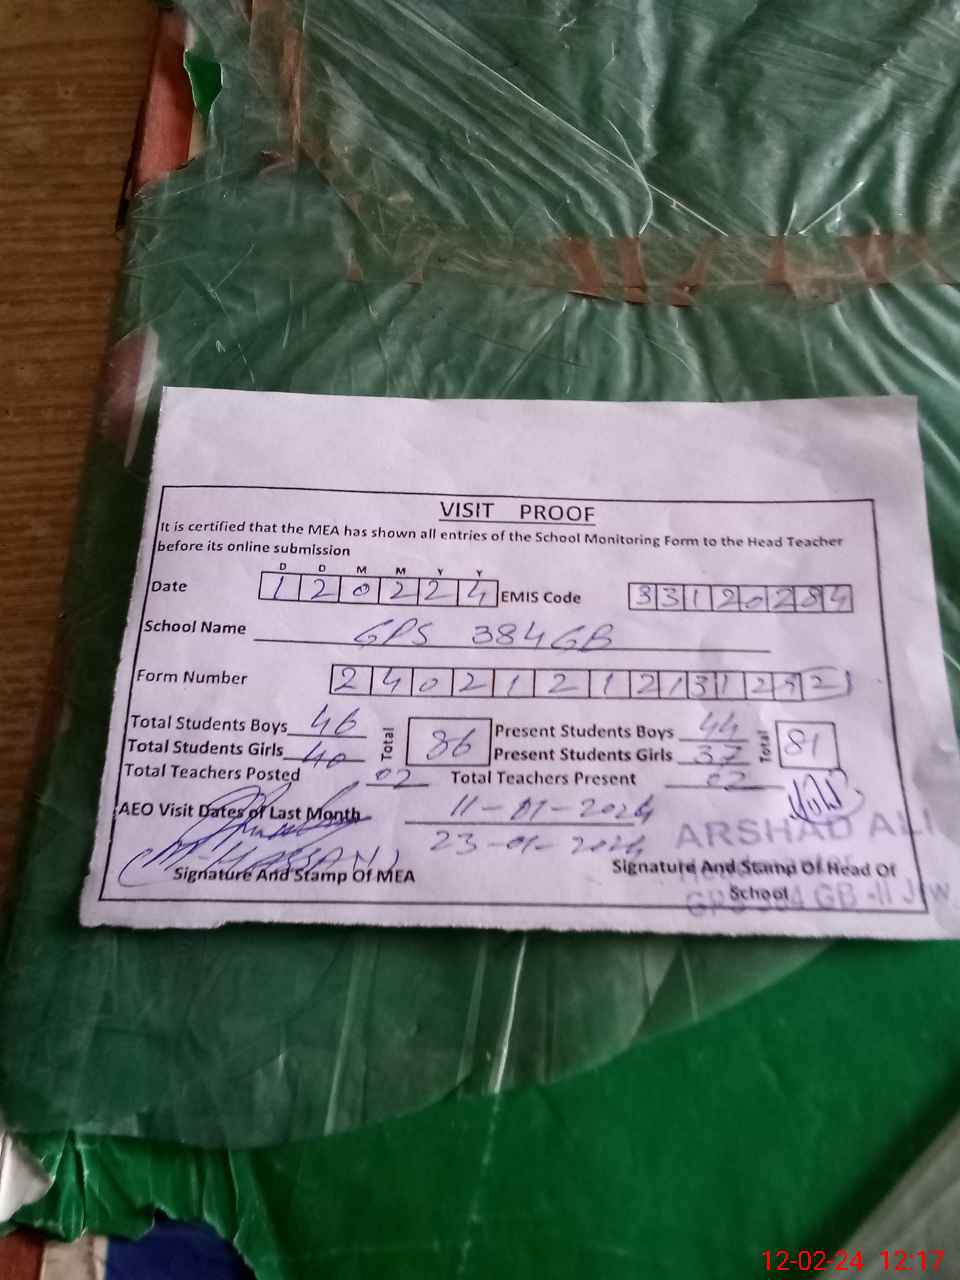 VISIT PROOF
It is certified that the MEA has shown all entries of the School Monitoring Form to the Head Teacher
before its online submission
D D M M Y Y
Date 1 2 0 2 2 4 EMIS Code 3 3 1 2 0 2 8 4
School Name GPS 384 GB
Form Number
Total Students Boys 46 Total 86 Present Students Boys 44 Total 81
Total Students Girls 40 Present Students Girls 37
Total Teachers Posted 02 Total Teachers Present 02
AEO Visit Dates of Last Month 11-01-2024
23-01-2024
ARSHAD ALI
M-HASSAN
Signature And Stamp Of MEA
Signature And Stamp Of Head Of
School
12-02-24 12:17